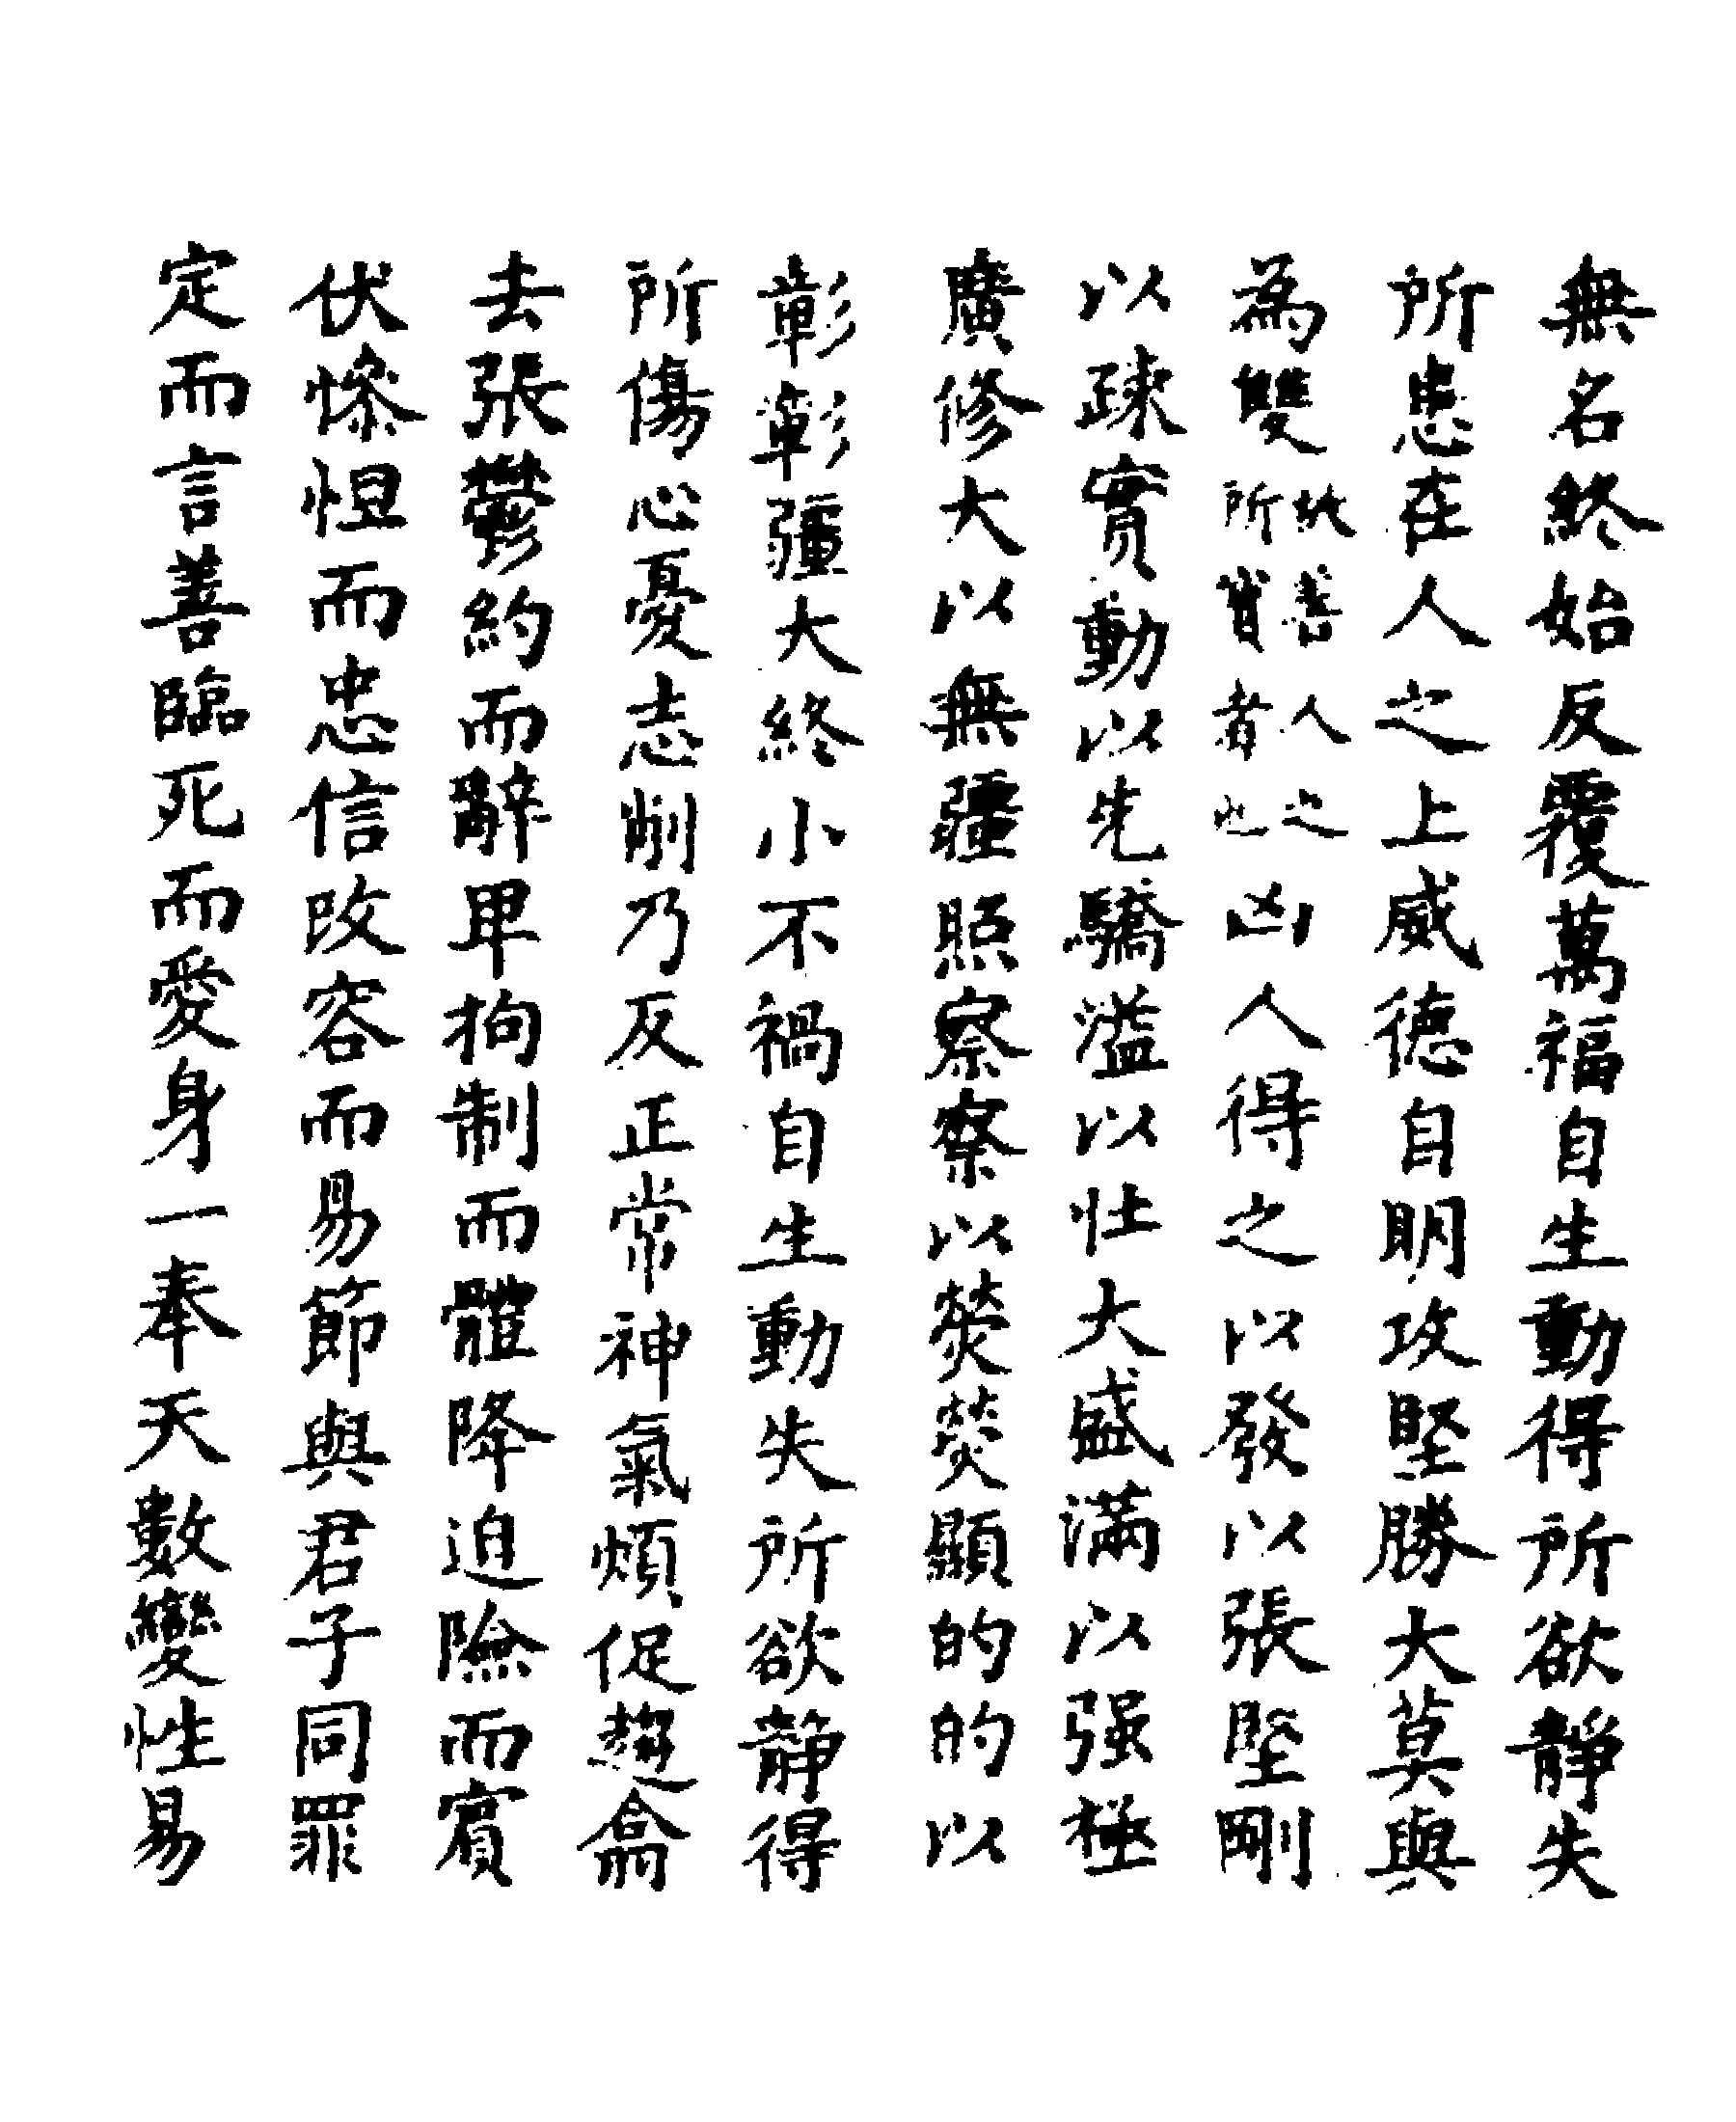 無名終始反覆萬福自生動得所欲靜失
所患在人之上威德自明攻堅勝大莫與
為雙此善人之所實者也凶人得之以發以張堅剛
以疎實動以先驕溢以壮大盛滿以强極
廣修大以無疆照察察以熒熒顯的的以
彰彰疆大終小不禍自生動失所欲静得
所傷心憂志削乃反正常神氣煩促趍翕
去張鬱約而辭卑拘制而體降迫險而賓
伏慘怛而忠信改容而易節與君子同罪
定而言善臨死而愛身一奉天數變性易